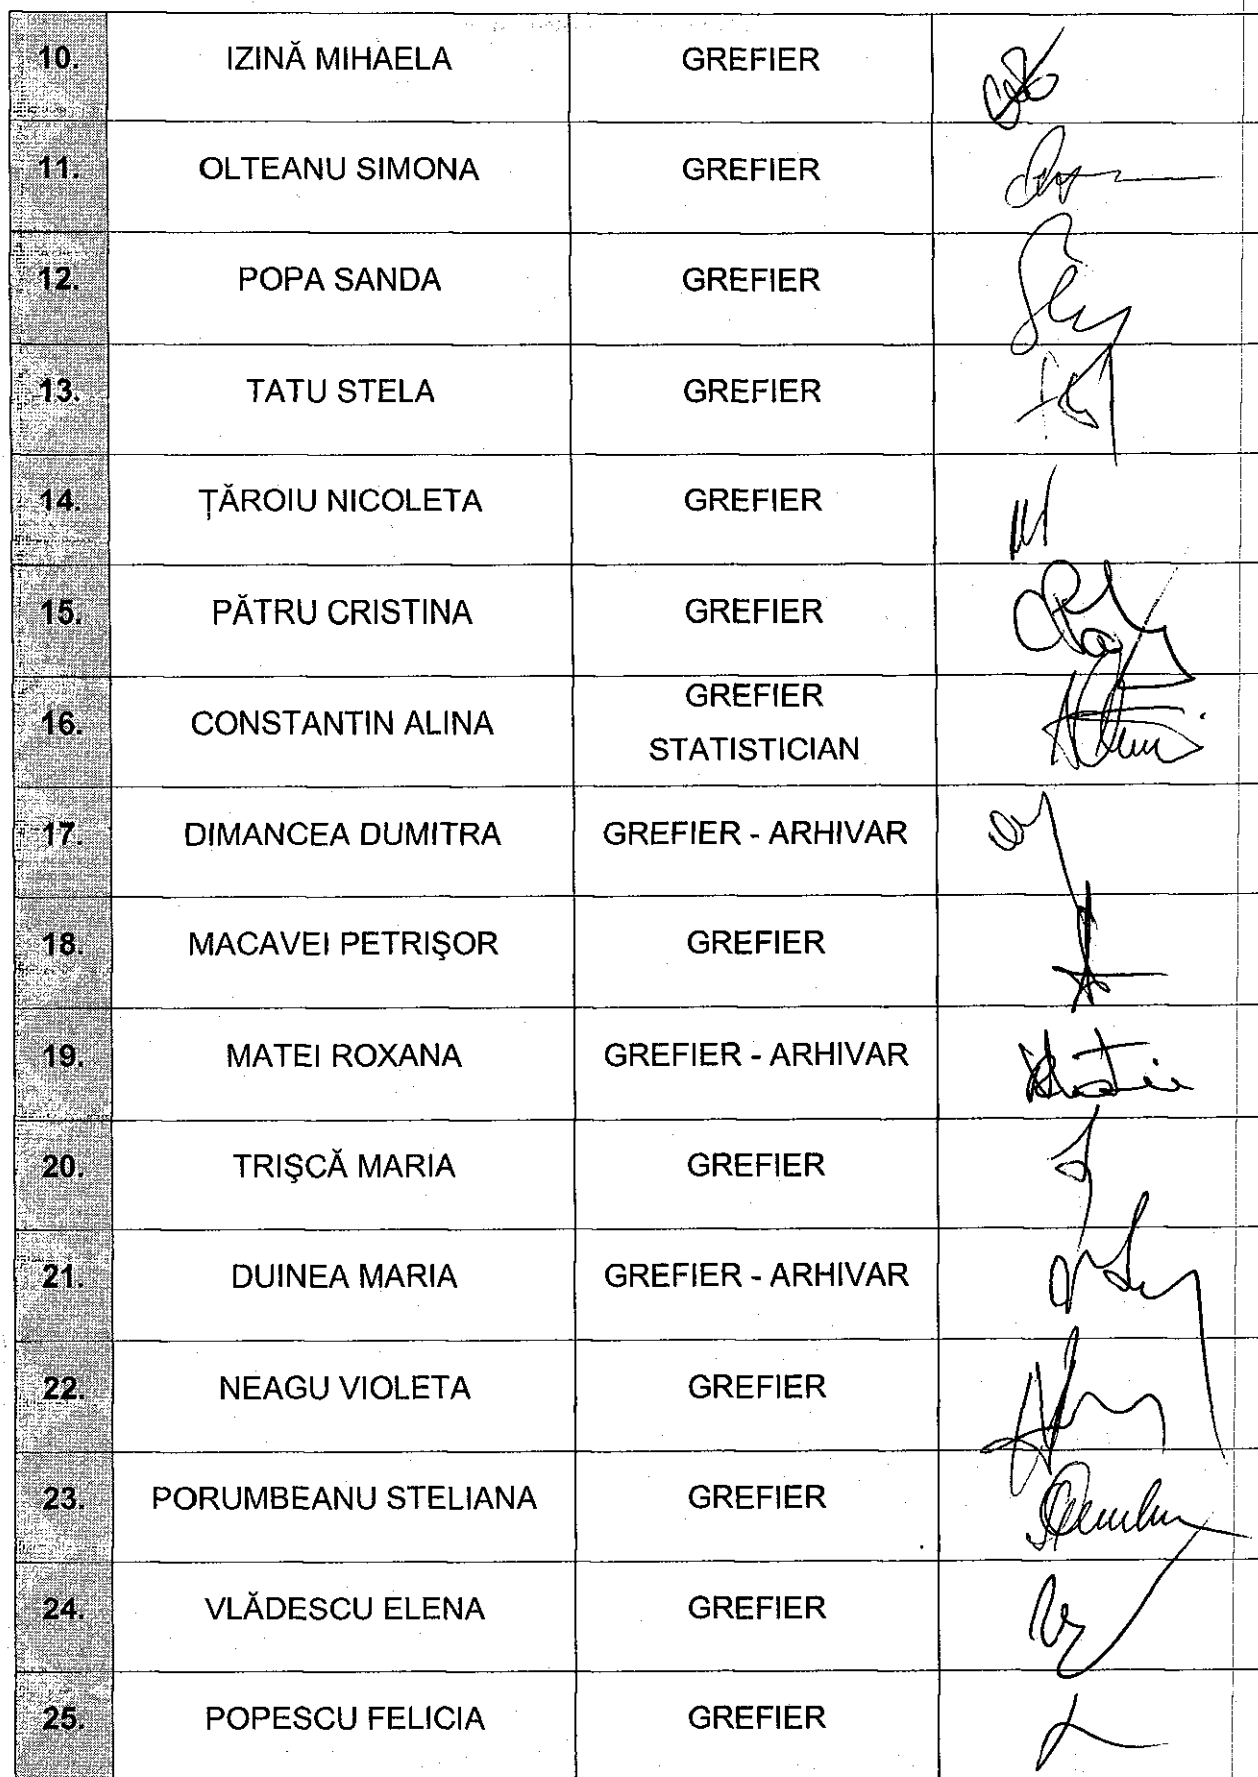 10. IZINĂ MIHAELA GREFIER
11. OLTEANU SIMONA GREFIER
12. POPA SANDA GREFIER
13. TATU STELA GREFIER
14. ȚĂROIU NICOLETA GREFIER
15. PĂTRU CRISTINA GREFIER
16. CONSTANTIN ALINA GREFIER
STATISTICIAN
17. DIMANCEA DUMITRA GREFIER - ARHIVAR
18. MACAVEI PETRIŞOR GREFIER
19. MATEI ROXANA GREFIER - ARHIVAR
20. TRIŞCĂ MARIA GREFIER
21. DUINEA MARIA GREFIER - ARHIVAR
22. NEAGU VIOLETA GREFIER
23. PORUMBEANU STELIANA GREFIER
24. VLĂDESCU ELENA GREFIER
25. POPESCU FELICIA GREFIER